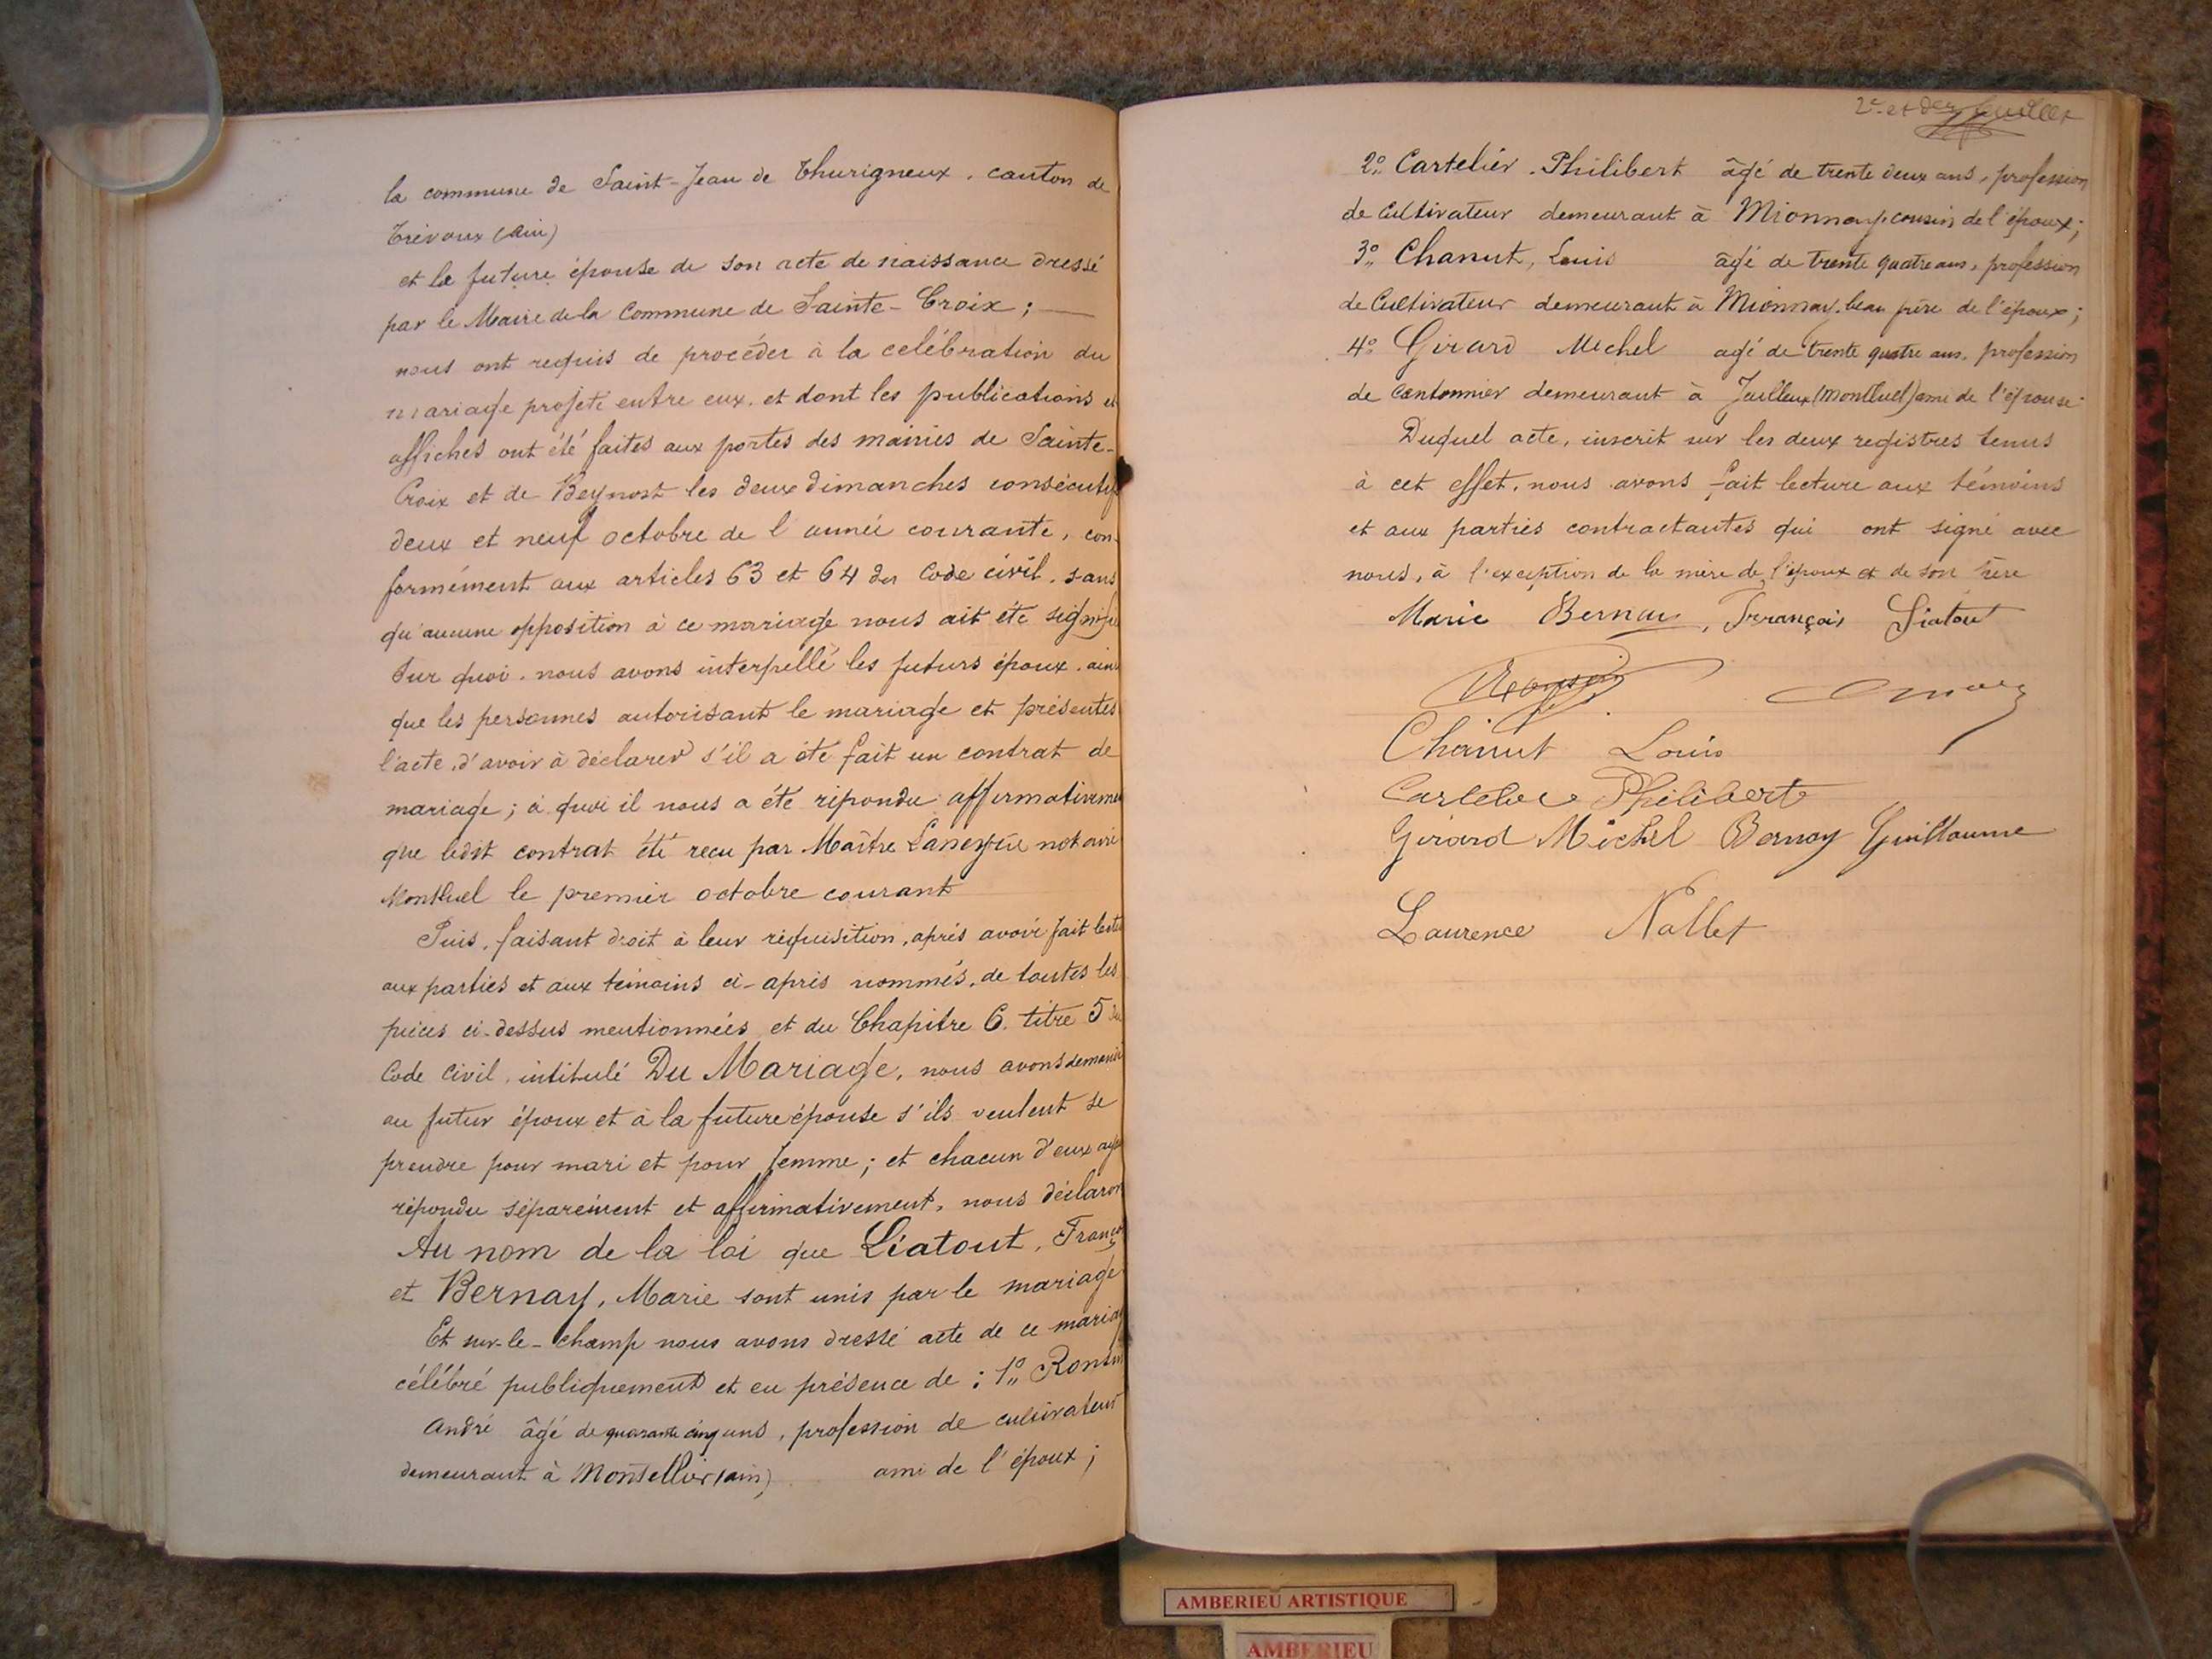 la commune de Saint-Jean de Thurigneux, canton de
Trévoux (Ain)
et la future épouse de son acte de naissance dressé
par le Maire de la Commune de Sainte-Croix ;
nous ont requis de procéder à la célébration du
mariage projeté entre eux, et dont les publications et
affiches ont été faites aux portes des mairies de Sainte-
Croix et de Beynost les deux dimanches consécutifs
deux et neuf octobre de l'année courante, con-
formément aux articles 63 et 64 du Code civil, sans
qu'aucune opposition à ce mariage nous ait été signifi
Sur quoi, nous avons interpellé les futurs époux, ains
que les personnes autorisant le mariage et présentes
l'acte, d'avoir à déclarer s'il a été fait un contrat de
mariage ; à quoi il nous a été répondu affirmativeme
que ledit contrat été reçu par Maître notaire
Montluel le premier octobre courant
Puis, faisant droit à leur réquisition, après avoir fait lectu
aux parties et aux témoins ci-après nommés, de toutes les
pièces ci-dessus mentionnées et du Chapitre 6. titre 5 du
Code Civil, intitulé Du Mariage, nous avons demandé
au futur époux et à la future épouse s'ils veulent se
prendre pour mari et pour femme ; et chacun d'eux aya
répondu séparément et affirmativement, nous déclaron
Au nom de la loi que Liatout, Franço
et Bernay, Marie sont unis par le mariage
Et sur-le-champ nous avons dressé acte de ce maria
célébré publiquement et en présence de : 1° Ronsin
André âgé de quarante cinq ans, profession de cultivateur
demeurant à Montellier (ain) ami de l'époux ;
2e et der feuillet
2° Cartelier, Philibert âgé de trente deux ans, profession
de Cultivateur demeurant à Mionnay, cousin de l'époux ;
3° Chanut, Louis âgé de trente quatre ans, profession
de Cultivateur demeurant à Mionnay, beau père de l'époux ;
4° Girard Michel agé de trente quatre ans, profession
de Cantonnier demeurant à Jailleux (Montluel) ami de l'épouse
Duquel acte, inscrit sur les deux registres tenus
à cet effet, nous avons fait lecture aux témoins
et aux parties contractantes qui ont signé avec
nous, à l'exception de la mère de l'époux et de son
Marie Bernay, François Liatout
Ronsin
Chanut Louis
Cartelier Philibert
Girard Michel Bernay Guillaume
Laurence Nallet
AMBERIEU ARTISTIQUE
AMBERIEU